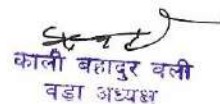 काली बहादुर वली
वडा अध्यक्ष